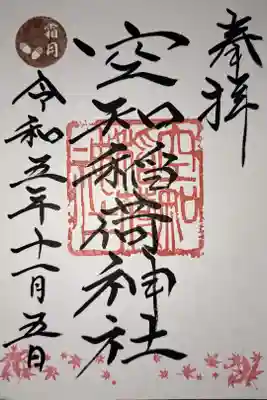 奉拝
空知稲荷神社
霜月
令和五年十一月五日